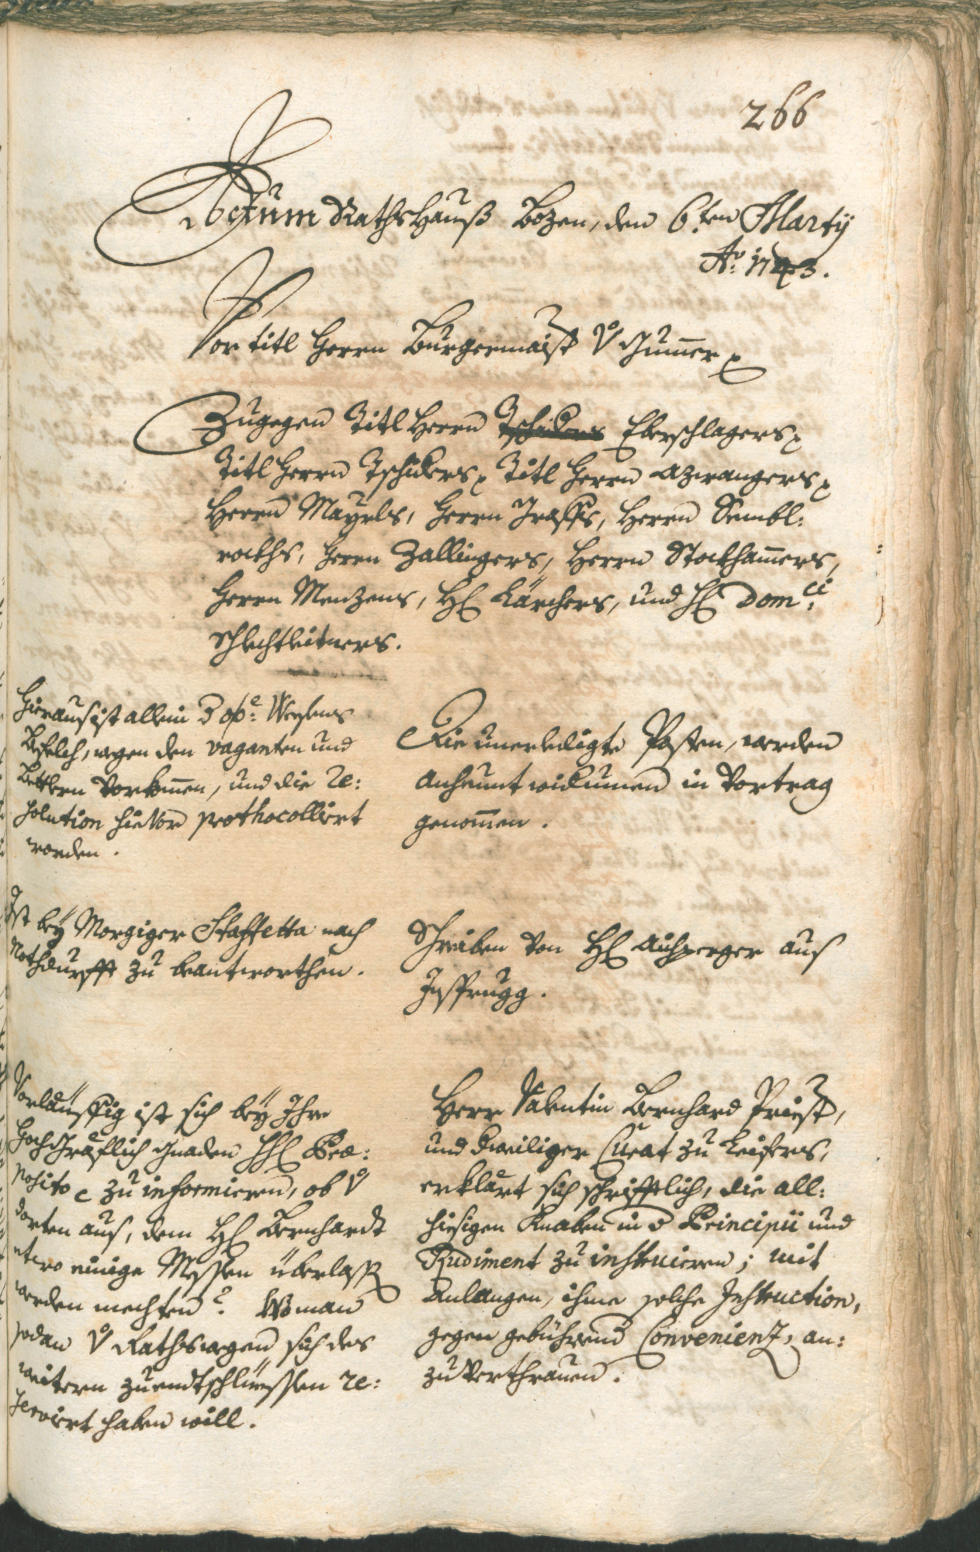 266
Actum Rathshauß Bozen, den 6.ten Martÿ
Ao. 1743.
Vor titl Herrn Burgermaist V Gummer
Zugegen Titl Herrn Tschiders Eberschlagers
Titl Herrn Tschiders, Titl Herrn Azwangers
Herrn Mayrls, Herrn Graffs, Herrn Sembl:
rockhs, Herrn Zallingers, Herrn Stockhamers,
Herrn Menzens, H Kärchers, und H Domci:
Schlechtleitners.
Hieraus ist allein
Befelch, wegen den vaganten und
Bettlern vorkommen, und die re:
solution hievor prothocolliert
worden.
Die unerledigte Posten, werden
anheunt widerumen in Vortrag
genommen.
Ist beÿ Morgiger Staffetta nach
Nothdurfft zu beantworthen.
Schreiben von H Aichperger aus
Insprugg.
Vorläuffig ist sich beÿ Ihro
Hochgräflich Gnaden H Prae:
posito zu informieren, ob
dorten aus, dem H Bernhardt
etwo einige Messen überlass
werden mechten? Wo man
sodan V Rathswegen sich des
weitern zuendtschliessen re:
serviert haben will.
Herr Valentin Bernhard Priest,
und dermaliger Curat zu Leifers,
erklärt sich schrifftlich, die all:
hiesigen Knaben in Principii und
Rudiment zu instruieren; mit
Anlangen, ihme solche Instruction,
gegen gebührend Convenienz, an:
zuverthrauen.